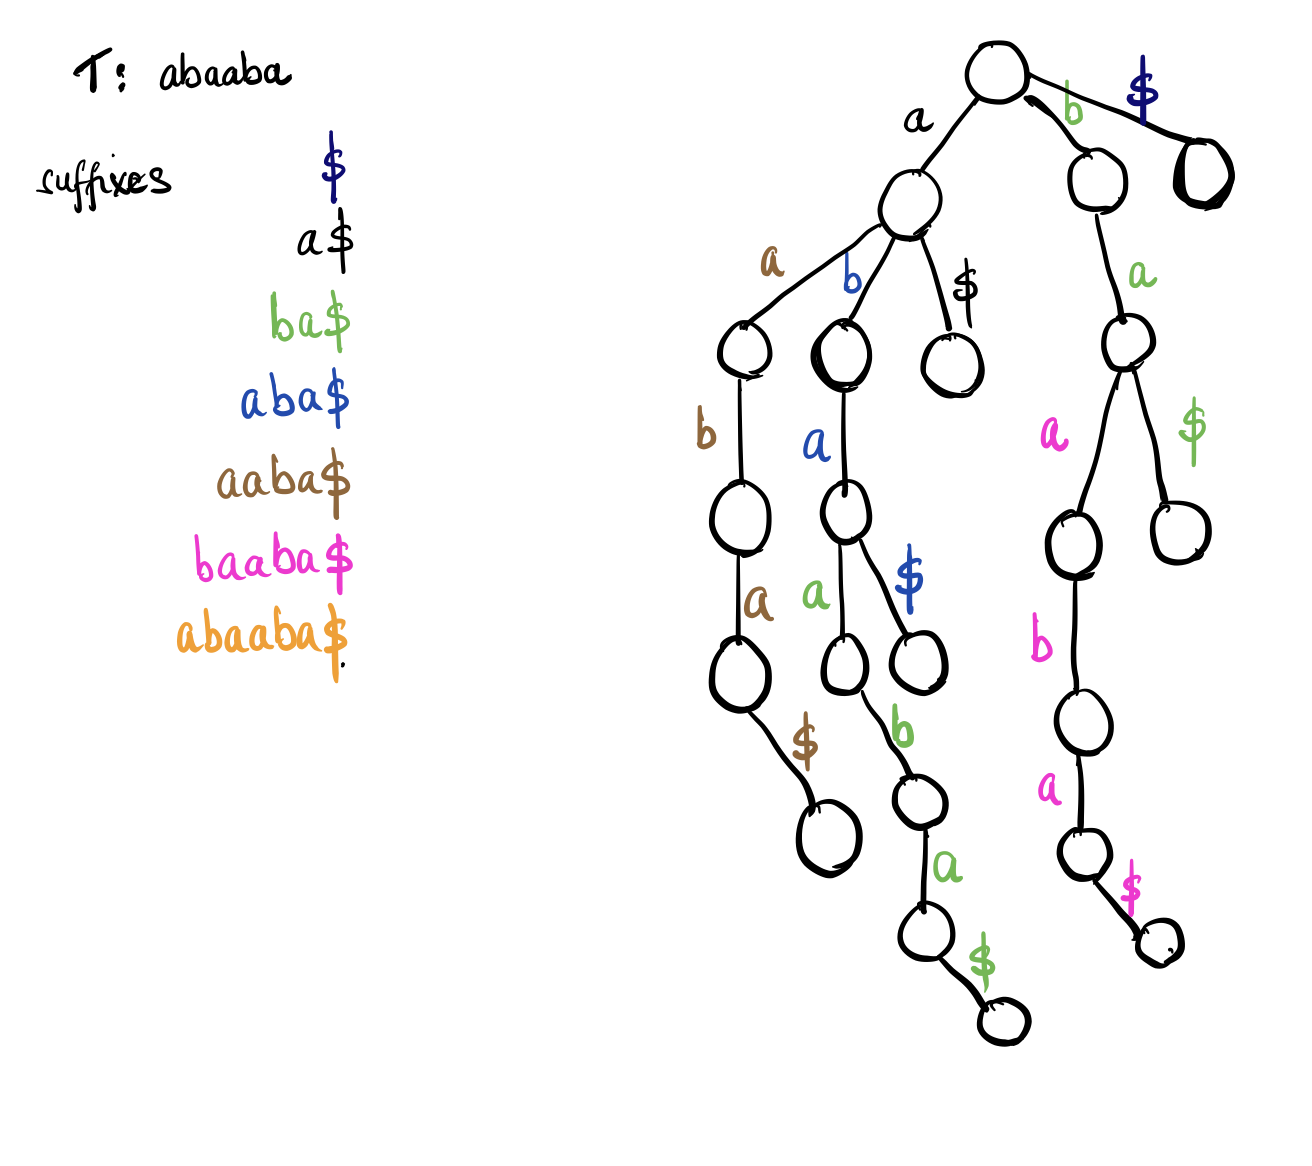 T: abaaba
suffixes
$
a$
ba$
aba$
aaba$
baaba$
abaaba$.
a
b
$
a
b
$
a
b
a
a
$
b
a
$
a
a
$
b
b
$
a
a
$
$